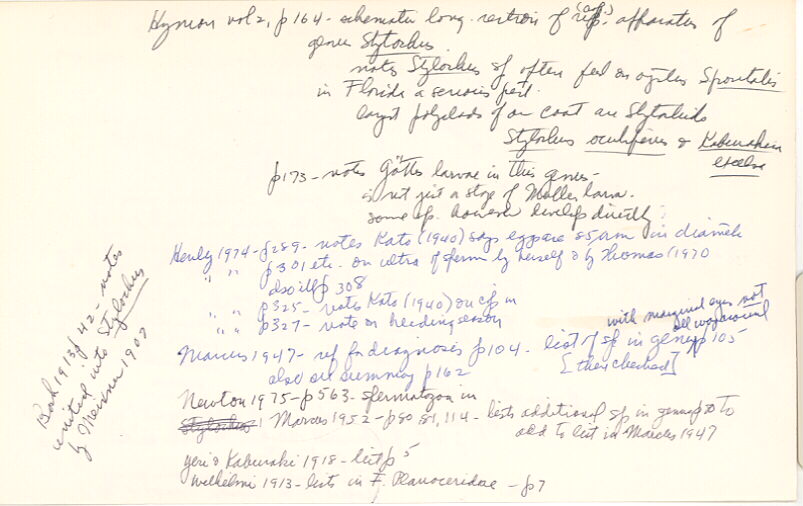 Hyman vol 2, p 164 - schematic long. section of rep. apparatus of
genus Stylochus
notes Stylochus sp often feed on oysters
in Florida a serious pest.
largest polyclads of our coast are Stylochids
Stylochus &
p173 - notes Götte's larvae in this genus -
is not just a stage of Müller larva.
some sp. however develop directly
Henley 1974 - p289 - notes Kato (1940) says eggs are in diameter
" " p301 etc. on ultra of sperm by herself & by Thomas (1970
also ill p 308
" " p325 - notes Kato (1940) on in
" " p327 - note on breeding season
with marginal eyes not
all way around
Marcus 1947 - ref for diagnosis p104. list of sp in genus p105
also see summary p162 [then checked]
Newton 1975 - p563 - spermatozoon in
Stylochus! Marcus 1952 - p80, 81, 114 - lists additional sp in genus to
add to list in Marcus 1947
Yeri & Kaburaki 1918 - list p5
Wilhelmi 1913 - lists in F. Planoceridae - p7
Bock 1913 p 42 - notes
united into Stylochus
by 1902